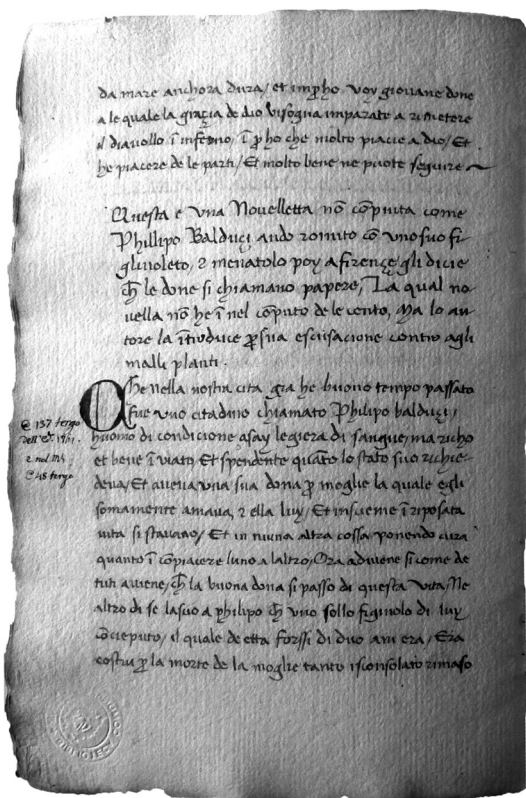 da mare anchora dura / et imp̱ho voy giovane done
a le quale la gracia de dio visogna imparate a rimetere
il diavollo ĩ inferno, ĩ p̱ho che molto piacie a dio / Et
he piacere de le parti / Et molto bene ne puote seguire ~
Questa e vna Nouelletta nõ cõpiuta come
Phillipo Balduçi ando romito cõ vno suo fi
gliuoleto, 2 menatolo poy a firençe, gli dicie
cħ le done si chiamano papere, La qual no
uella nõ he ĩ nel cõputo de le cento, Ma lo au
tore la ĩtroduce p̱ sua escusacione contro agli
malli planti.
Che nella nostra cita gia he buono tempo passato
fue vno citadino chiamato Philipo balduçi /
huomo di condicione asay legiera di sangue, ma richo
et bene ĩ viato, Et spendente quãto lo stato suo richie
deua / Et aueua vna sua dona p̱ moglie la quale egli
somamente amaua, 2 ella luy / Et insieme ĩ riposata
vita si stauano / Et in niuna altra cossa ponendo cura
quanto ĩ cõpiacere luno a laltro, Ora adiuene si come de
tuti auiene, cħ la buona dona si passo di questa vita / Ne
altro di se lascio a philipo cħ vno sollo figiuolo di luy
cõceputo, il quale de etta forssi di duo ani era / Era
costui p̱ la morte de la moglie tanto isconsolato rimaso
@ 137 tergo
dell'Ed. 1761.
e nel MS
@ 48 tergo